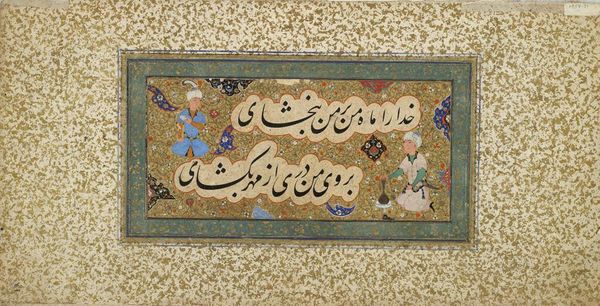 خدا را ماه من بر من ببخشای
بروی من دری از مهر بگشای